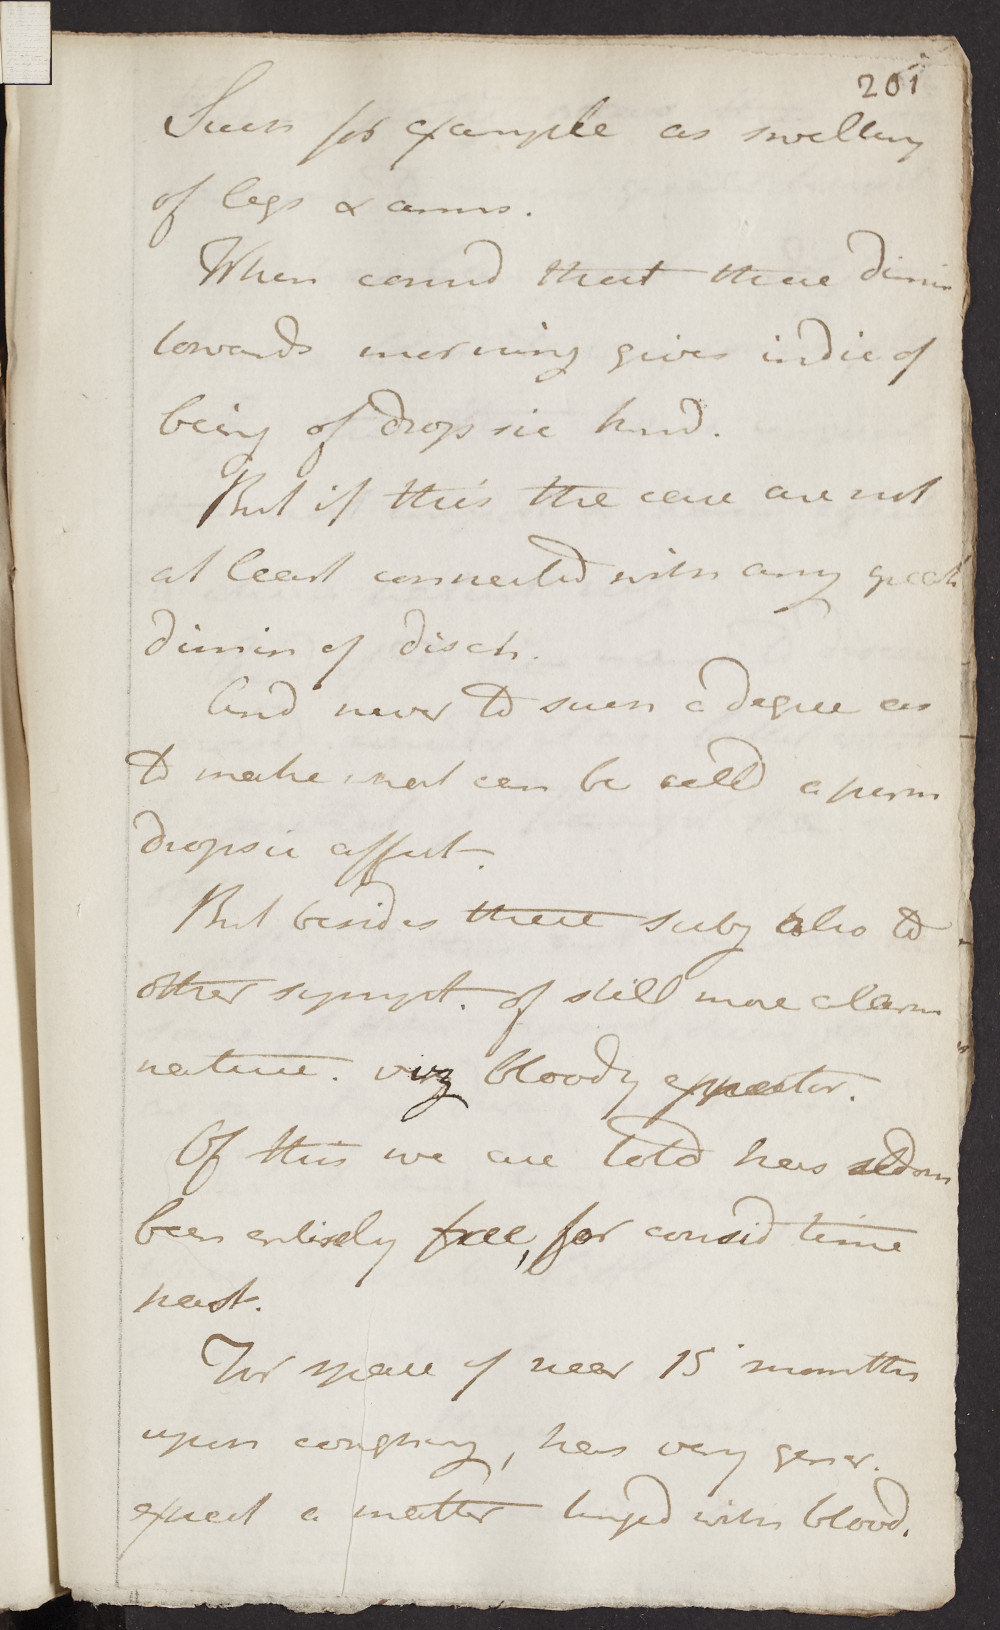 201
Such for example as swelling
of legs & arms.
When consid that these dimin
towards morning gives indic of
being of dropsic kind.
But if this the case are not
at least connected with any great
dimin of disch.
And never to such a degree as
to make what can be call'd a perm
dropsic affect.
But besides these subj also to
other sympt. of still more alarm
nature. viz bloody expector.
Of this we are told has seldom
been entirely free, for consid time
past.
For space of near 15 months
upon coughing, has very gener.
expect a matter tinged with blood.